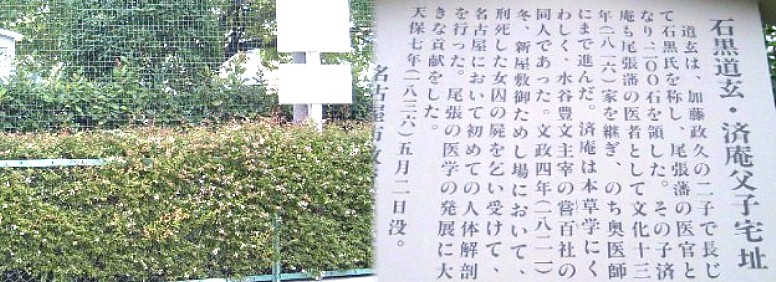 石黒道玄・済庵父子宅址
道玄は、加藤政久の二子で長じ
て石黒氏を称し、尾張藩の医官と
なり二〇〇石を領した。その子済
庵も尾張藩の医者として文化十三
年(八一六)家を継ぎ、のち奥医師
にまで進んだ。済庵は本草学にく
わしく、水谷豊文主宰の嘗百社の
同人であった。文政四年(八二一)
冬、新屋敷御ためし場において、
刑死した女囚の屍を乞い受けて、
名古屋において初めての人体解剖
を行った。尾張の医学の発展に大
きな貢献をした。
天保七年(八三六)五月二日没。
名古屋市教